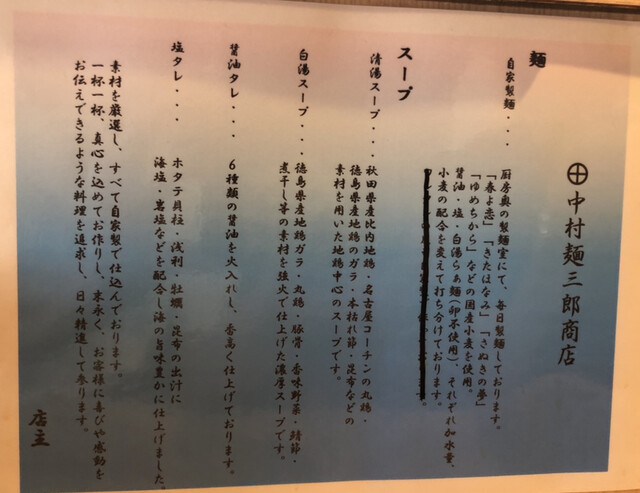 中村麺三郎商店
麺
自家製麺・・・
厨房奥の製麺室にて、毎日製麺しております。
「春よ恋」「きたほなみ」「さぬきの夢」
「ゆめちから」などの国産小麦を使用。
醤油・塩・白湯らぁ麺(卵不使用)、それぞれ加水量、
小麦の配合を変えて打ち分けております。
スープ
清湯スープ・・・
秋田県産比内地鶏・名古屋コーチンの丸鶏・
徳島県産地鶏のガラ・本枯れ節・昆布などの
素材を用いた地鶏中心のスープです。
白湯スープ・・・
徳島県産地鶏ガラ・丸鶏・豚骨・香味野菜・鯖節・
煮干し等の素材を強火で仕上げた濃厚スープです。
醤油タレ・・・
6種類の醤油を火入れし、香高く仕上げております。
塩タレ・・・
ホタテ貝柱・浅利・牡蠣・昆布の出汁に
海塩・岩塩などを配合し海の旨味豊かに仕上げました。
素材を厳選し、すべて自家製で仕込んでおります。
一杯一杯、真心を込めてお作りし、末永く、お客様に喜びや感動を
お伝えできるような料理を追求し、日々精進して参ります。
店主